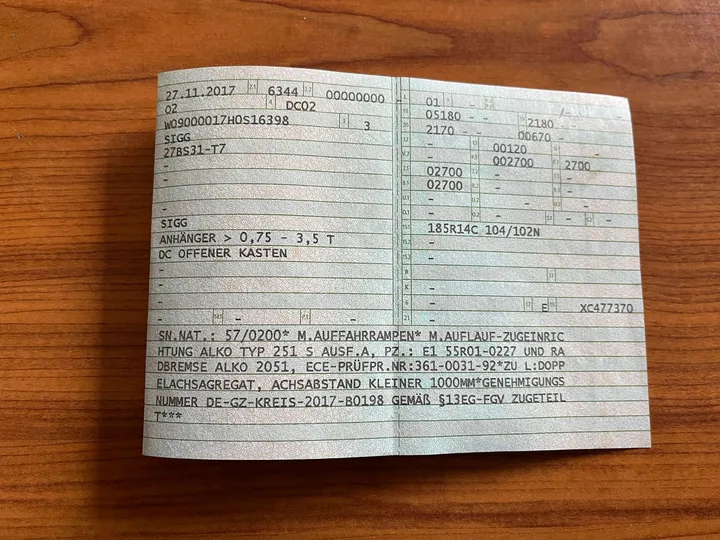 27.11.2017 6344 00000000 -
02 DC02
W09000017H0S16398 3
SIGG
27BS31-T7
-
-
-
-
SIGG
ANHÄNGER > 0,75 - 3,5 T
DC OFFENER KASTEN
-
-
-
- - -
01 - /- -
05180 - - 2180 - -
2170 - - 00670 - -
- 00120 -
- 002700 2700
02700 - -
02700 - -
- - -
- - - -
185R14C 104/102N
-
-
-
-
- E XC477370
-
SN.NAT.: 57/0200* M.AUFFAHRRAMPEN* M.AUFLAUF-ZUGEINRIC
HTUNG ALKO TYP 251 S AUSF.A, PZ.: E1 55R01-0227 UND RA
DBREMSE ALKO 2051, ECE-PRÜFPR.NR:361-0031-92*ZU L:DOPP
ELACHSAGREGAT, ACHSABSTAND KLEINER 1000MM*GENEHMIGUNGS
NUMMER DE-GZ-KREIS-2017-B0198 GEMÄß §13EG-FGV ZUGETEIL
T***